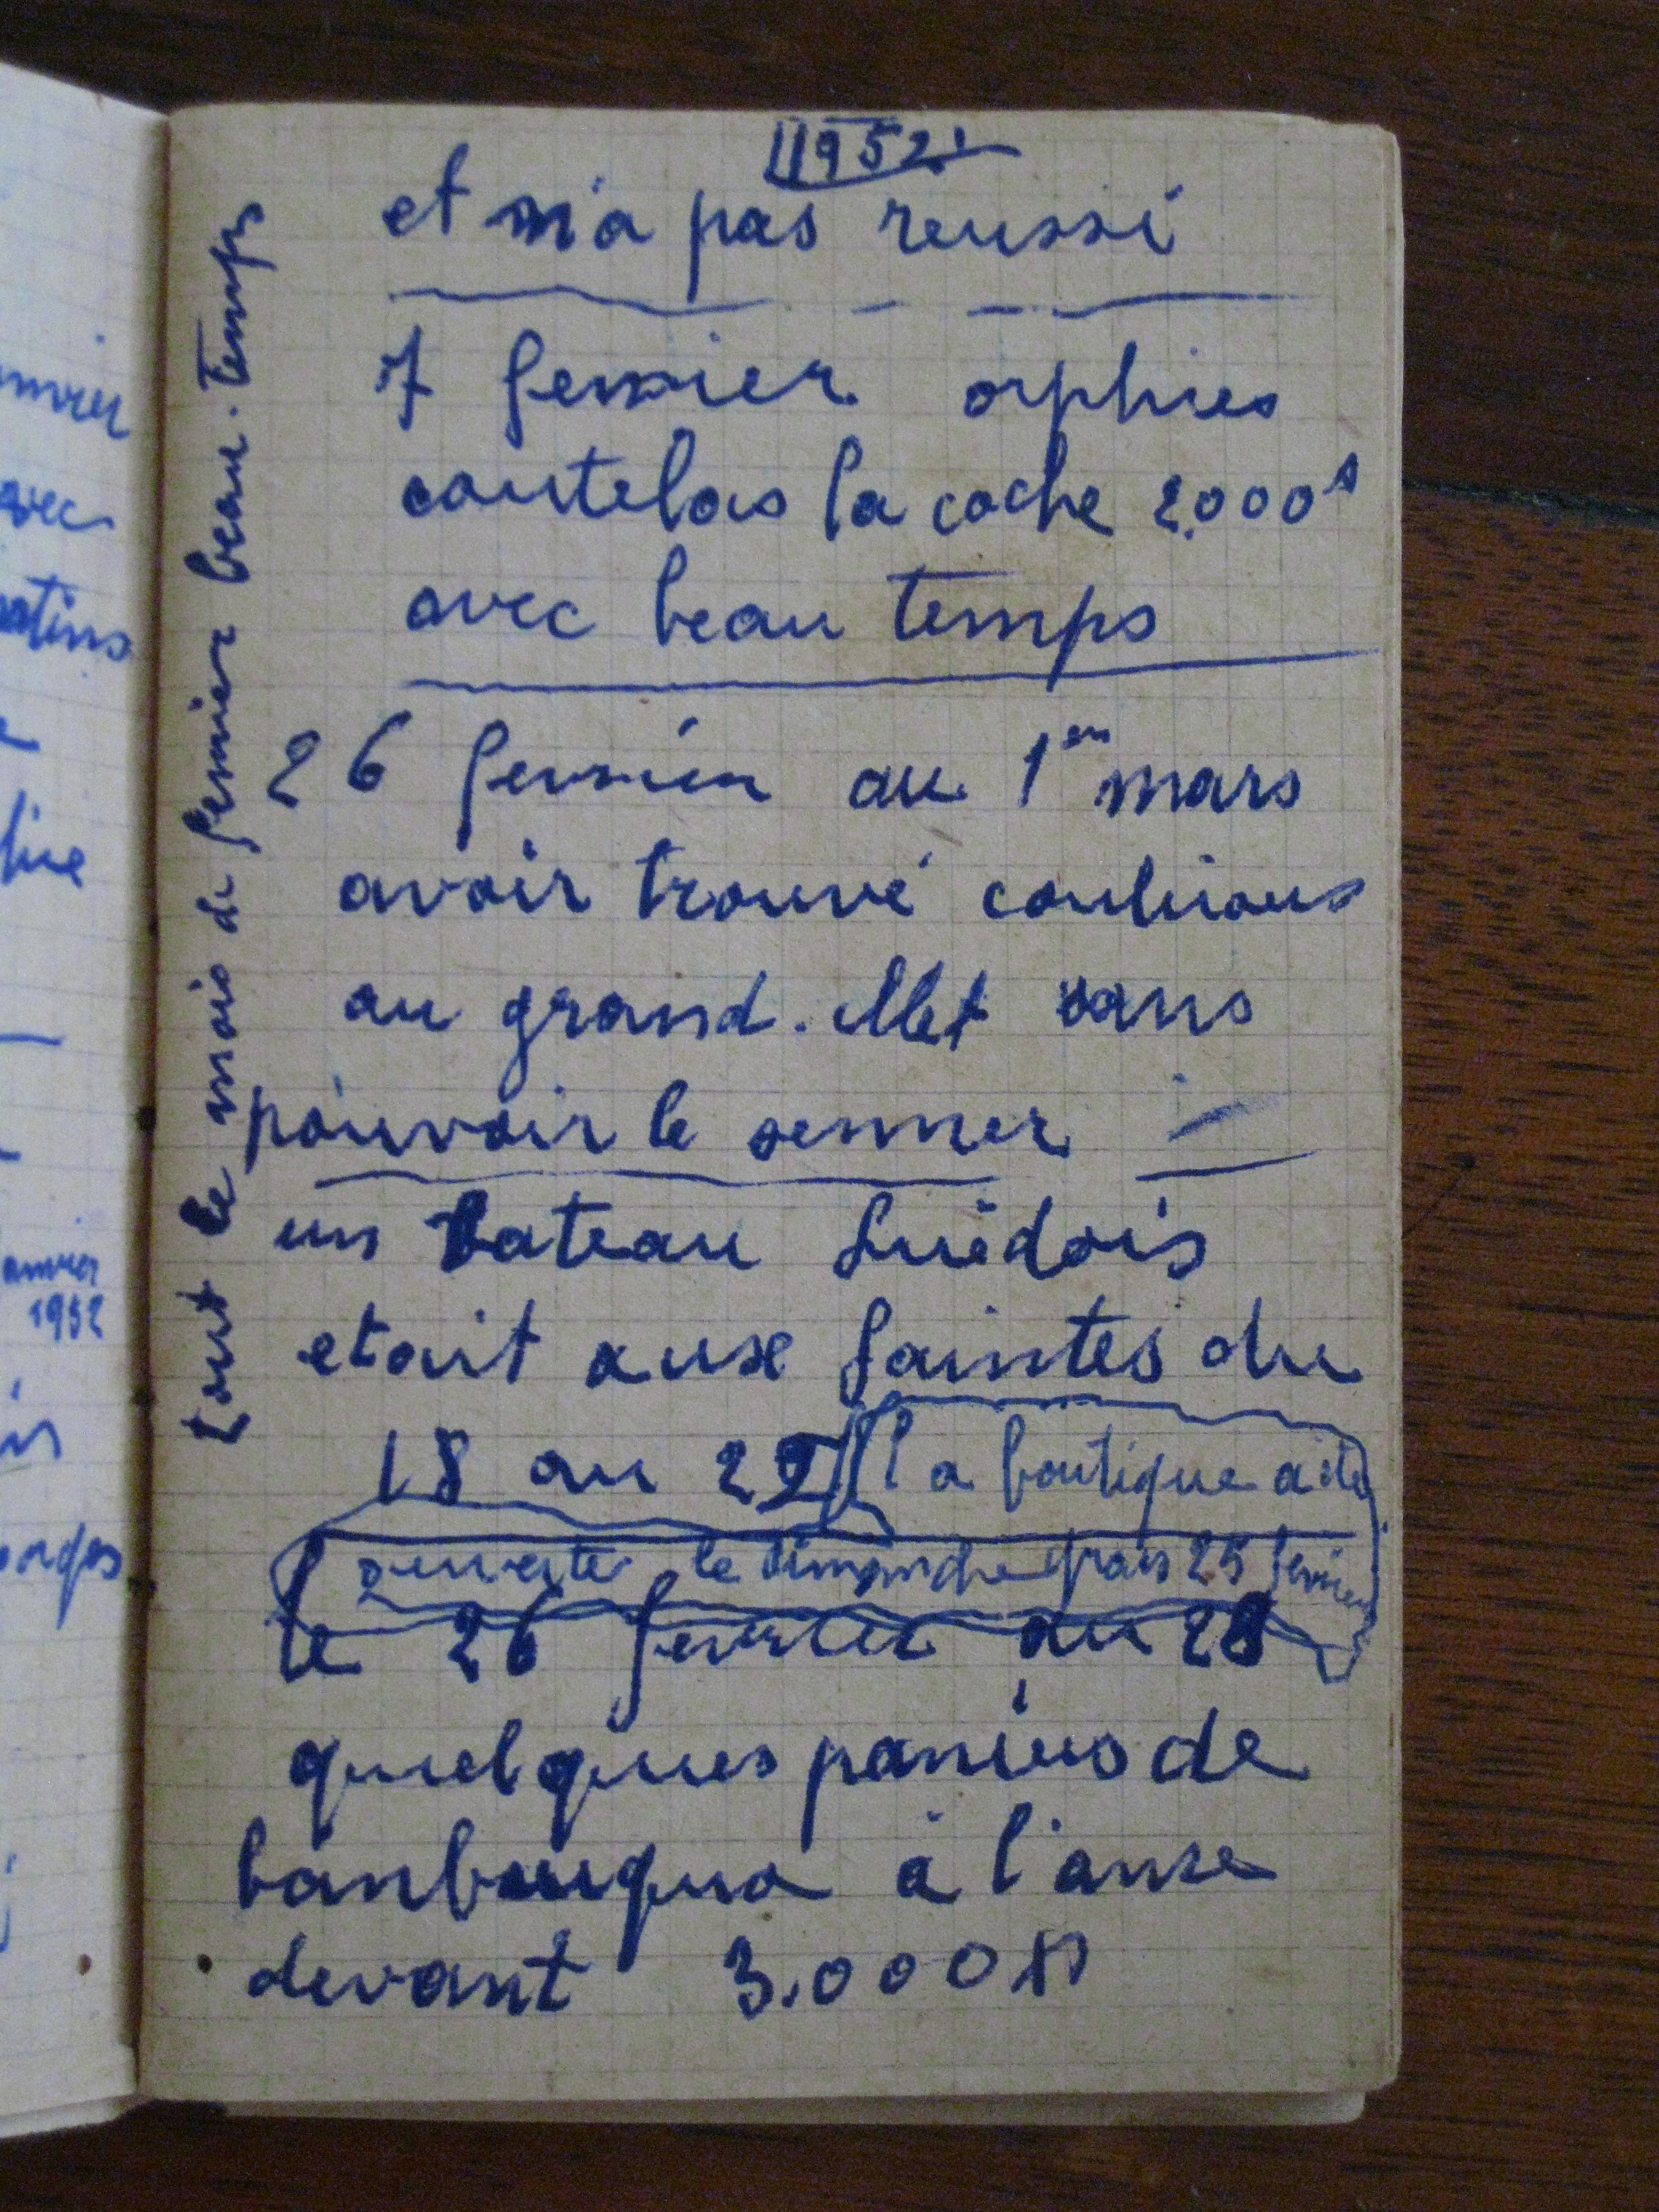 1952
et n'a pas reussi
7 fevrier orphies
coutelas la coche 2.000s
avec beau temps
26 fevrier au 1er mars
avoir trouvé coulirous
au grand. illet sans
pouvoir le senner
un bateau Suédois
etait aux Saintes du
18 au 22
la boutique a été
ouverte le dimanche gras 25 fevrier
le 26 fevrier au 28
quelques paniers de
à l'anse
devant 3.000
tout le mois de fevrier beau. temps
avec
janvier
1952